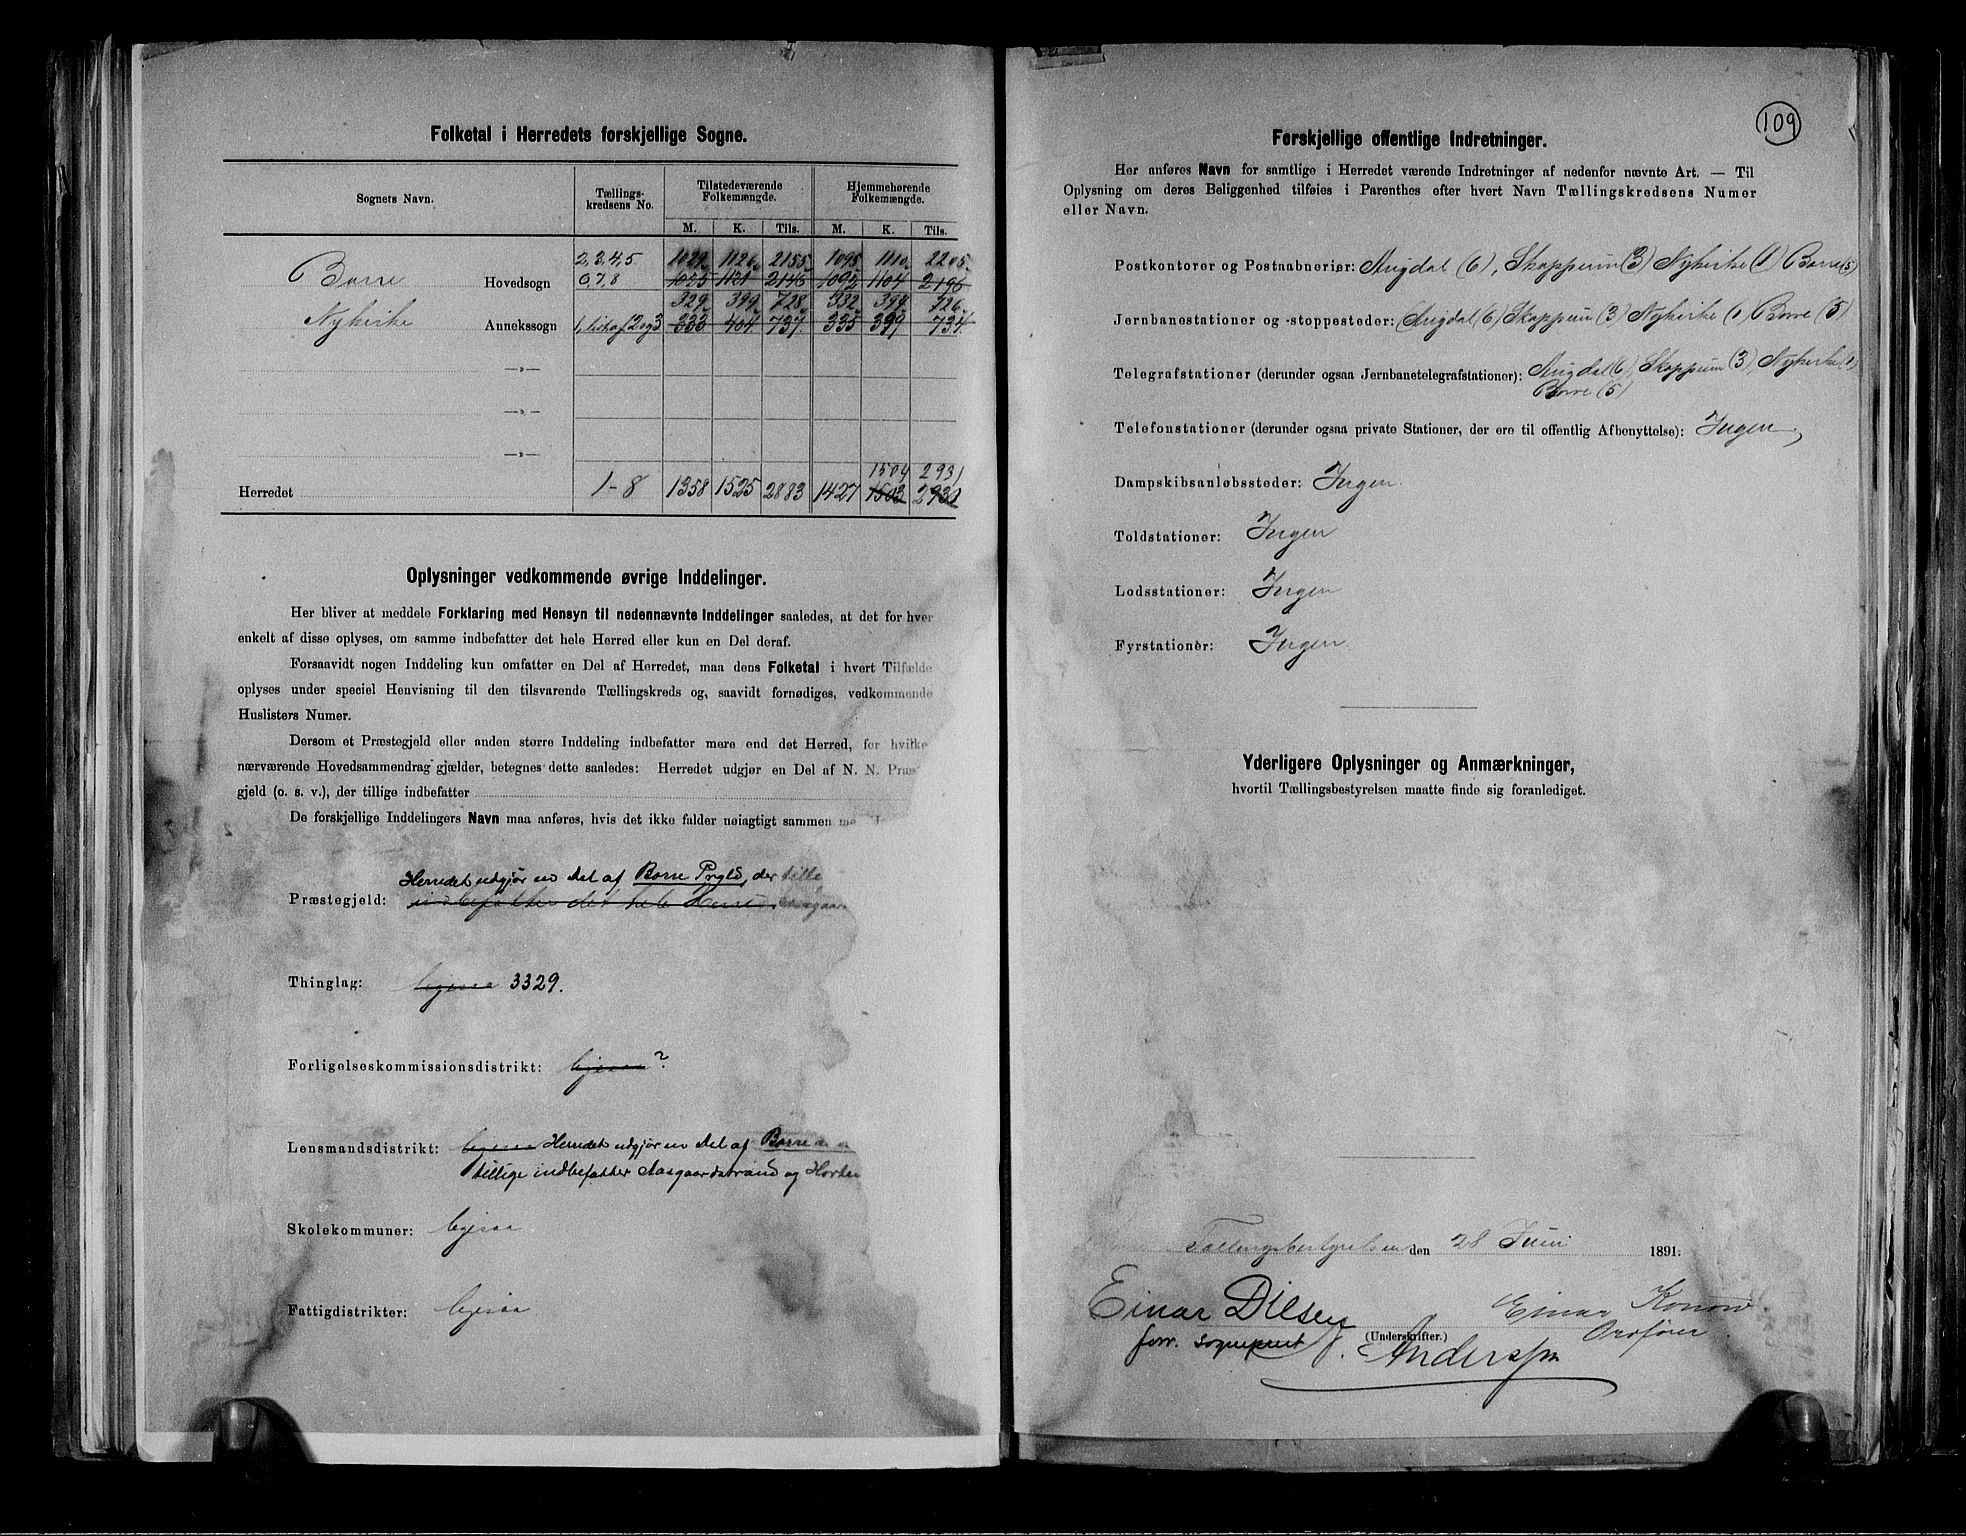 Folketal i Herredets forskjellige Sogne.
Sognets Navn. Tællings-kredsens No. Tilstedeværende Folkemængde. Hjemmehørende Folkemængde.
M. K. Tils. M. K. Tils.
2, 3, 4, 5 1029 1126 2155 1095 1110 2205
Borre Hovedsogn 6, 7, 8 1025 1121 2146 1092 1104 2196
329 399 728 332 394 726
Nykirke Annekssogn 1, 2 og 3 333 404 737 335 399 734
—»—
—»—
—»—
1504 2931
Herredet 1-8 1358 1525 2883 1427 1503 2930
Oplysninger vedkommende øvrige Inddelinger.
Her bliver at meddele Forklaring med Hensyn til nedennævnte Inddelinger saaledes, at det for hver
enkelt af disse oplyses, om samme indbefatter det hele Herred eller kun en Del deraf.
Forsaavidt nogen Inddeling kun omfatter en Del af Herredet, maa dens Folketal i hvert Tilfælde
oplyses under speciel Henvisning til den tilsvarende Tællingskreds og, saavidt fornødiges, vedkommende
Huslisters Numer.
Dersom et Præstegjeld eller anden større Inddeling indbefatter mere end det Herred, for hvilke
nærværende Hovedsammendrag gjælder, betegnes dette saaledes: Herredet udgjør en Del af N. N. Præst
gjeld (o. s. v.), der tillige indbefatter
De forskjellige Inddelingers Navn maa anføres, hvis det ikke falder nøiagtigt sammen me
Herredet udgjør en Del af Borre Prgld, der tille
Præstegjeld: indbefatter det hele Herred
Thinglag: ligesaa 3329.
Forligelseskommissionsdistrikt: ligesaa ?
Lensmandsdistrikt: ligesaa Herredet udgjør en Del af Borre
tillige indbefatter Aasgaardstrand og Horten
Skolekommuner: ligesaa
Fattigdistrikter: ligesaa
109
Forskjellige offentlige Indretninger.
Her anføres Navn for samtlige i Herredet værende Indretninger af nedenfor nævnte Art. — Til
Oplysning om deres Beliggenhed tilføies i Parenthes efter hvert Navn Tællingskredsens Numer
eller Navn.
Postkontorer og Postaabnerier: Augdal (6), Skoppum (3) Nykirke (1) Borre (5)
Jernbanestationer og -stoppesteder: Augdal (6) Skoppum (3) Nykirke (1) Borre (5)
Telegrafstationer (derunder ogsaa Jernbanetelegrafstationer): Augdal (6), Skoppum (3), Nykirke (1)
Borre (5)
Telefonstationer (derunder ogsaa private Stationer, der ere til offentlig Afbenyttelse): Ingen,
Dampskibsanløbssteder: Ingen.
Toldstationer: Ingen
Lodsstationer: Ingen
Fyrstationer: Ingen.
Yderligere Oplysninger og Anmærkninger,
hvortil Tællingsbestyrelsen maatte finde sig foranlediget.
Tællingsbestyrelsen den 28 Juni 1891.
Einar Dilsen Einar Konow.
forr. sogneprest (Underskrifter.) Ordfører
J. Anderssen